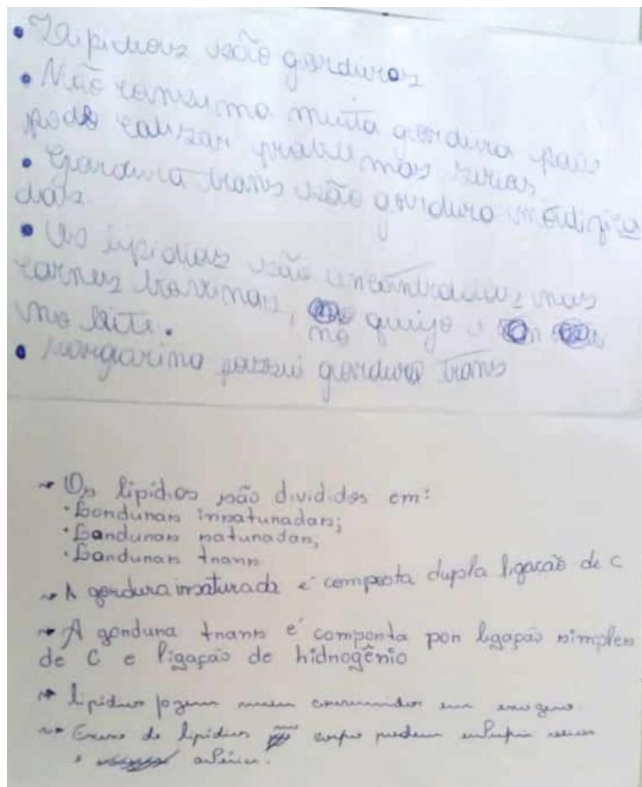 • Lipidios são gorduras
• Não consuma muita gordura pois
pode causar problemas serios
• Gordura trans são gordura modifica
das
• Os lipidios são encontrados nas
carnes bovinas, no queijo e
no leite.
• Margarina possui gordura trans
→ Os lipídios são divididos em:
• Gorduras insaturadas;
• Gorduras saturadas;
• Gorduras trans
→ A gordura insaturada é composta dupla ligação de C
→ A gordura trans é composta por ligação simples
de C e ligação de hidrogênio
→ lipidios fazem consumidos em
→ Excesso de lipidios corpo podem entupir veias
e artérias.